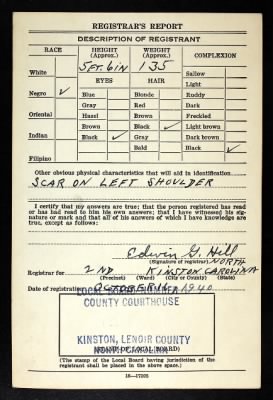 REGISTRAR'S REPORT
DESCRIPTION OF REGISTRANT
RACE
HEIGHT (Approx.)
WEIGHT (Approx.)
COMPLEXION
White
5 FT. 6 IN
135
Sallow
EYES
HAIR
Light
Negro ✓
Blue
Blonde
Ruddy
Gray
Red
Dark
Oriental
Hazel
Brown
Freckled
Brown
Black ✓
Light brown
Indian
Black ✓
Gray
Dark brown
Bald
Black ✓
Filipino
Other obvious physical characteristics that will aid in identification
SCAR ON LEFT SHOULDER
I certify that my answers are true; that the person registered has read
or has had read to him his own answers; that I have witnessed his
signature or mark and that all of his answers of which I have knowledge are
true, except as follows:
Edwin G. Hill
(Signature of registrar)
NORTH
Registrar for 2ND KINSTON CAROLINA
(Precinct) (Ward) (City or County) (State)
Date of registration OCTOBER 16 1940
COUNTY COURTHOUSE
KINSTON, LENOIR COUNTY
NORTH CAROLINA
(STAMP OF LOCAL BOARD)
(The stamp of the Local Board having jurisdiction of the
registrant shall be placed in the above space.)